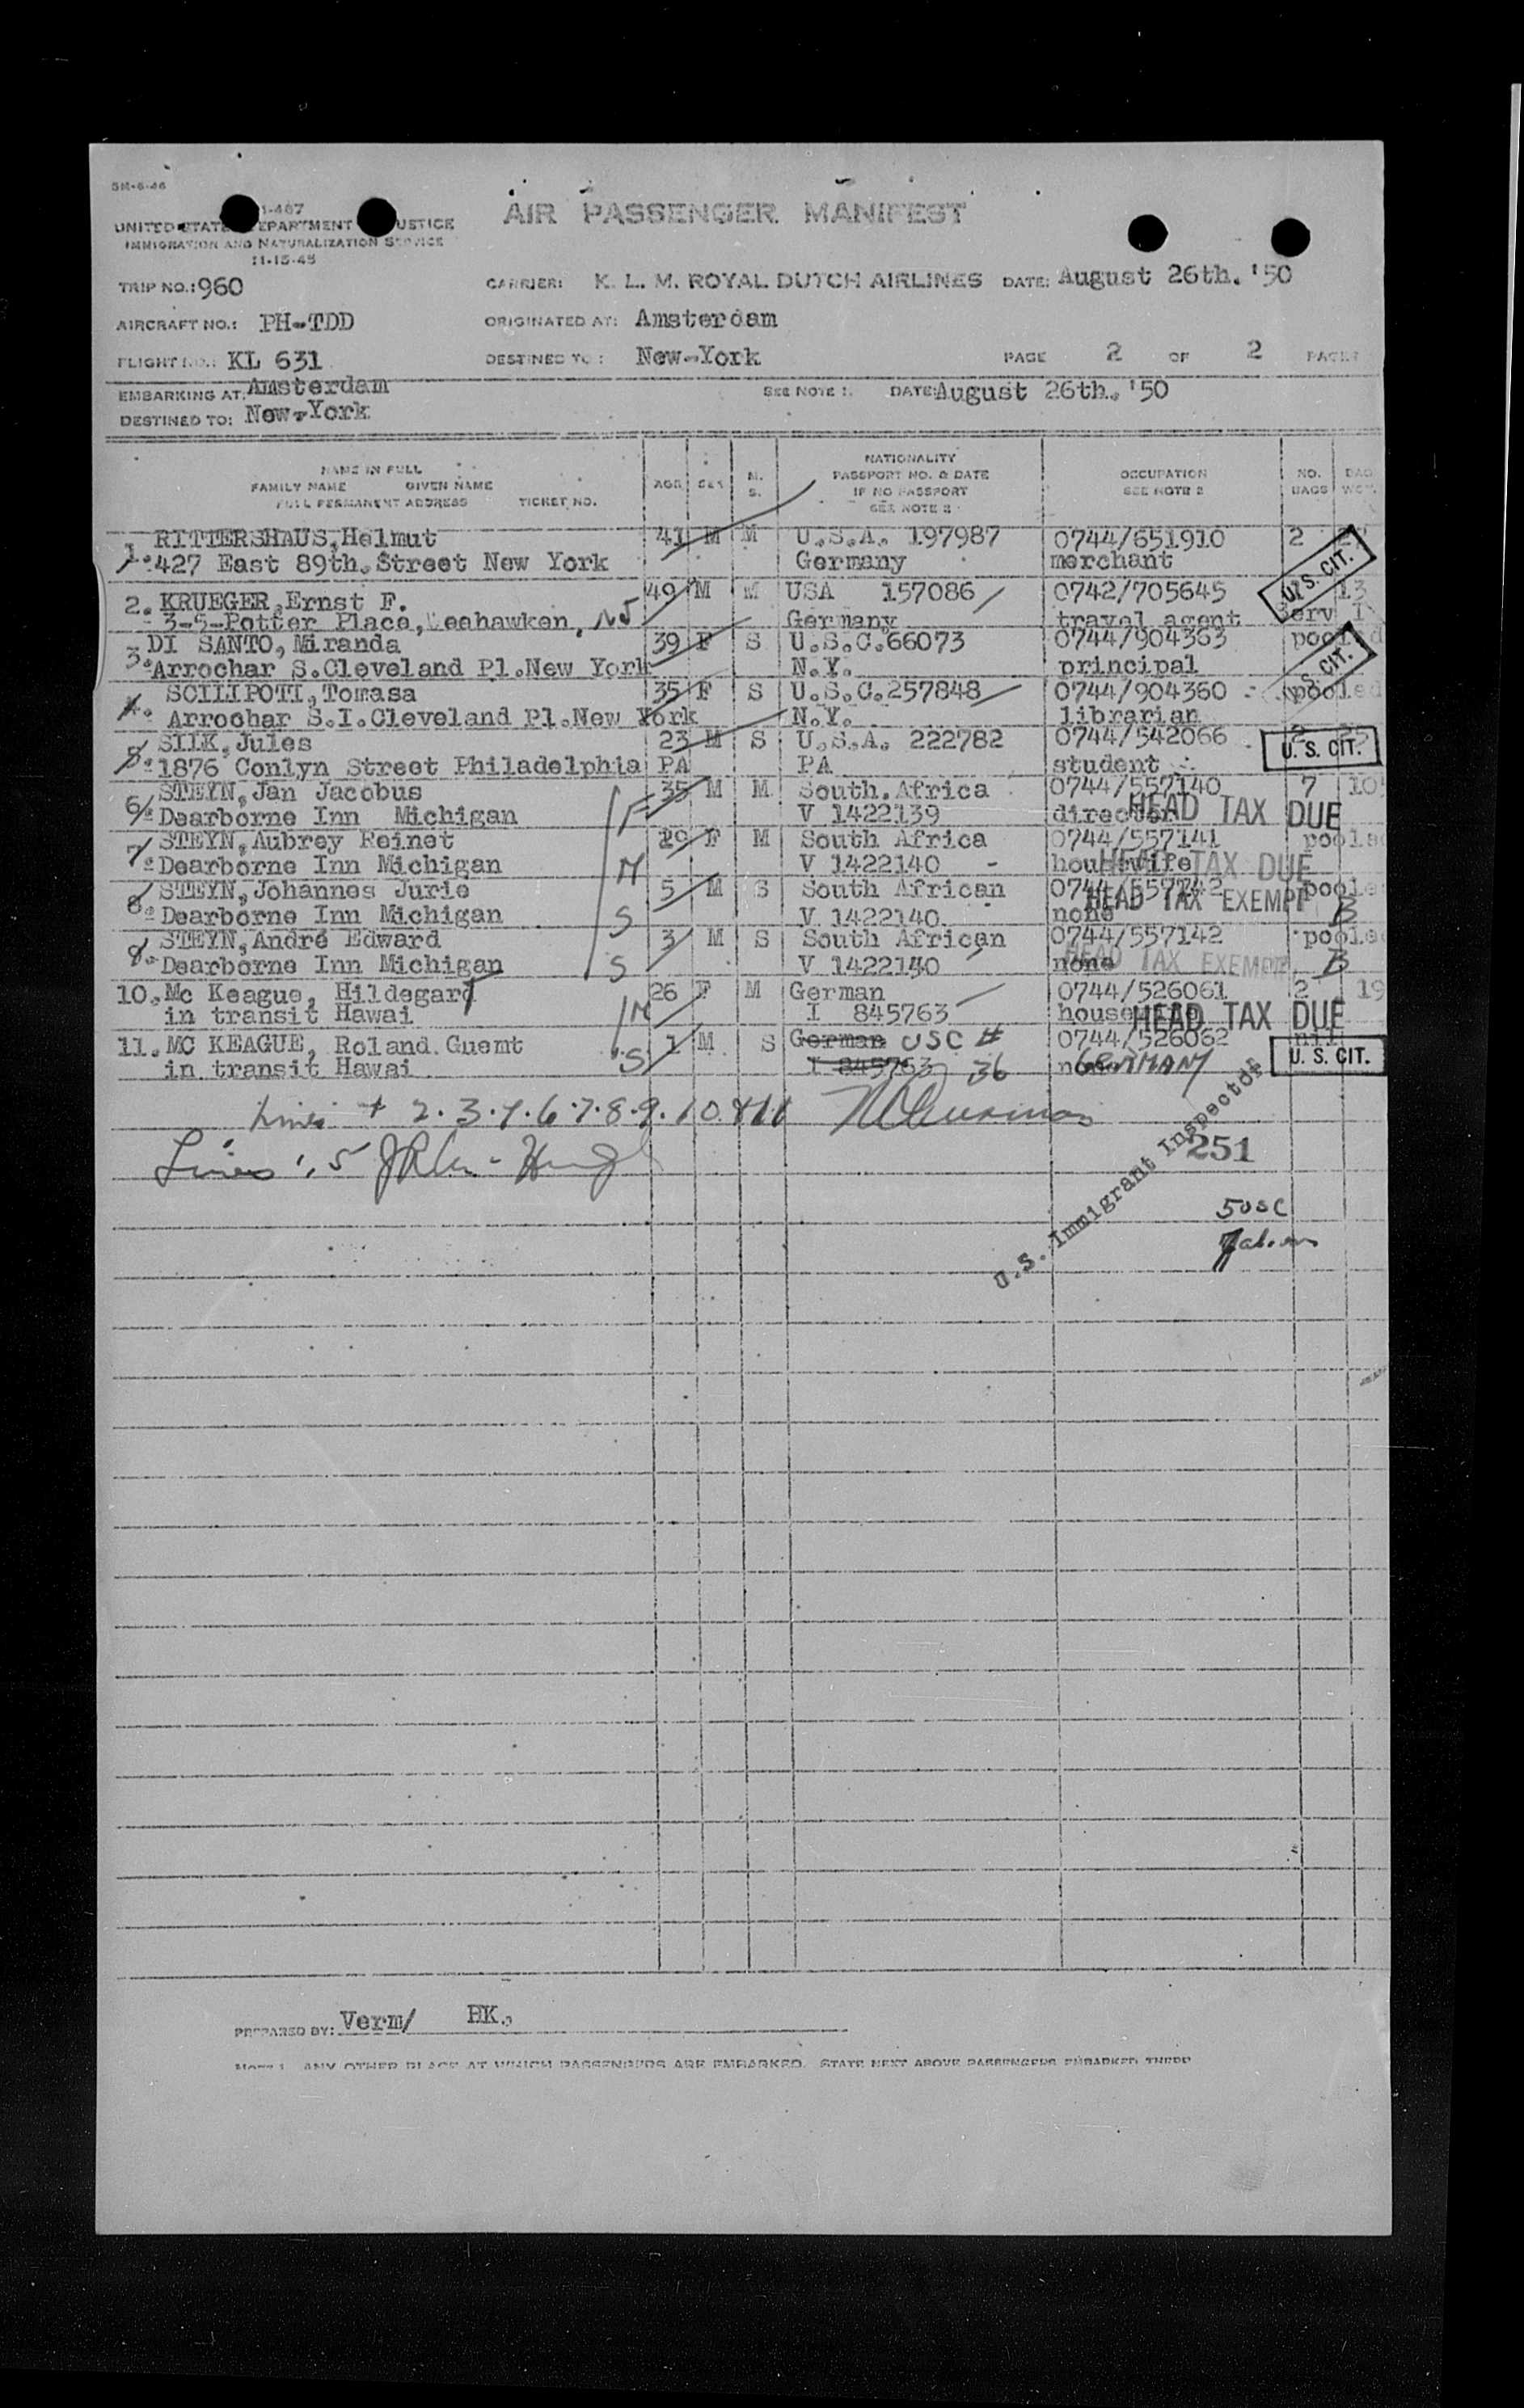 5M-6-46
I-467
UNITED STATES DEPARTMENT JUSTICE
IMMIGRATION AND NATURALIZATION SERVICE
11-15-45
AIR PASSENGER MANIFEST
TRIP NO.: 960 CARRIER: K. L. M. ROYAL DUTCH AIRLINES DATE: August 26th. '50
AIRCRAFT NO.: PH-TDD ORIGINATED AT: Amsterdam
FLIGHT NO.: KL 631 DESTINED TO: New-York PAGE 2 OF 2 PAGES
EMBARKING AT: Amsterdam SEE NOTE 1. DATE: August 26th. '50
DESTINED TO: New-York
NAME IN FULL
FAMILY NAME GIVEN NAME
FULL PERMANENT ADDRESS TICKET NO.
AGE SEX M. S.
NATIONALITY
PASSPORT NO. & DATE
IF NO PASSPORT
SEE NOTE 2
OCCUPATION
SEE NOTE 2
NO. BAGS
BAG WGT.
1. RITTERSHAUS, Helmut 41 M M U.S.A. 197987 0744/651910 2
427 East 89th. Street New York Germany merchant
U. S. CIT.
2. KRUEGER, Ernst F. 49 M M USA 157086 0742/705645 13
3-5-Potter Place, Weehawken, NJ Germany travel agent
3. DI SANTO, Miranda 39 F S U.S.C. 66073 0744/904363 pooled
Arrochar S.Cleveland Pl.New York N.Y. principal
S. CIT.
4. SCILIPOTI, Tomasa 35 F S U.S.C. 257848 0744/904360 pooled
Arrochar S.I.Cleveland Pl.New York N.Y. librarian
5. SILK, Jules 23 M S U.S.A. 222782 0744/542066 2 25
1876 Conlyn Street Philadelphia PA PA student
U. S. CIT.
6. STEYN, Jan Jacobus F 35 M M South.Africa 0744/557140 7 105
Dearborne Inn Michigan V 1422139 director
HEAD TAX DUE
7. STEYN, Aubrey Reinet M F M South Africa 0744/557141 pooled
Dearborne Inn Michigan V 1422140 - housewife
HEAD TAX DUE
8. STEYN, Johannes Jurie S 5 M S South African 0744/557142 pooled
Dearborne Inn Michigan V 1422140 none B
HEAD TAX EXEMPT
9. STEYN, André Edward S 3 M S South African 0744/557142 pooled
Dearborne Inn Michigan V 1422140 none B
HEAD TAX EXEMPT
10. Mc Keague, Hildegard M 26 F M German 0744/526061 2 19
in transit Hawai I 845763 housewife
HEAD TAX DUE
11. MC KEAGUE, Roland Guemt S 1 M S German USC # 0744/526062 nil
in transit Hawai I 845763 36 GERMANY
U. S. CIT.
2.3.4.6.7.8.9.10.&11
Lines 1, 5
U.S. Immigrant Inspector
251
5 USC
7 aliens
PREPARED BY: Verm/ HK.
NOTE 1. ANY OTHER PLACE AT WHICH PASSENGERS ARE EMBARKED, STATE NEXT ABOVE PASSENGERS EMBARKED THERE